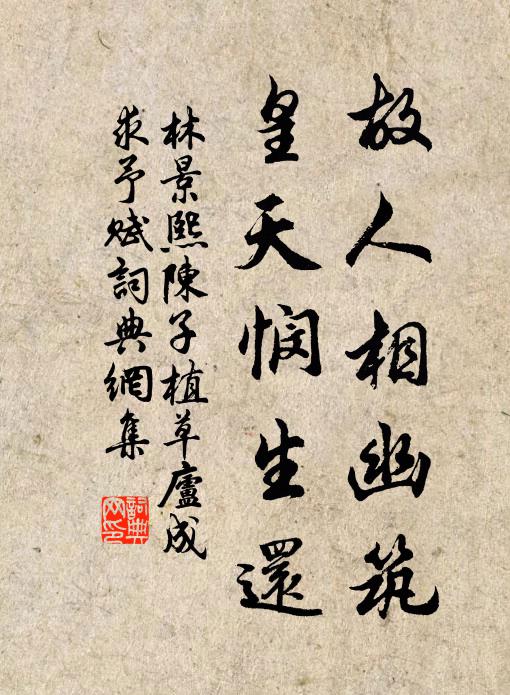 故人相幽筑
皇天悯生還
林景熙陳子植草廬成
求予赋詞典網集
詞典
网印